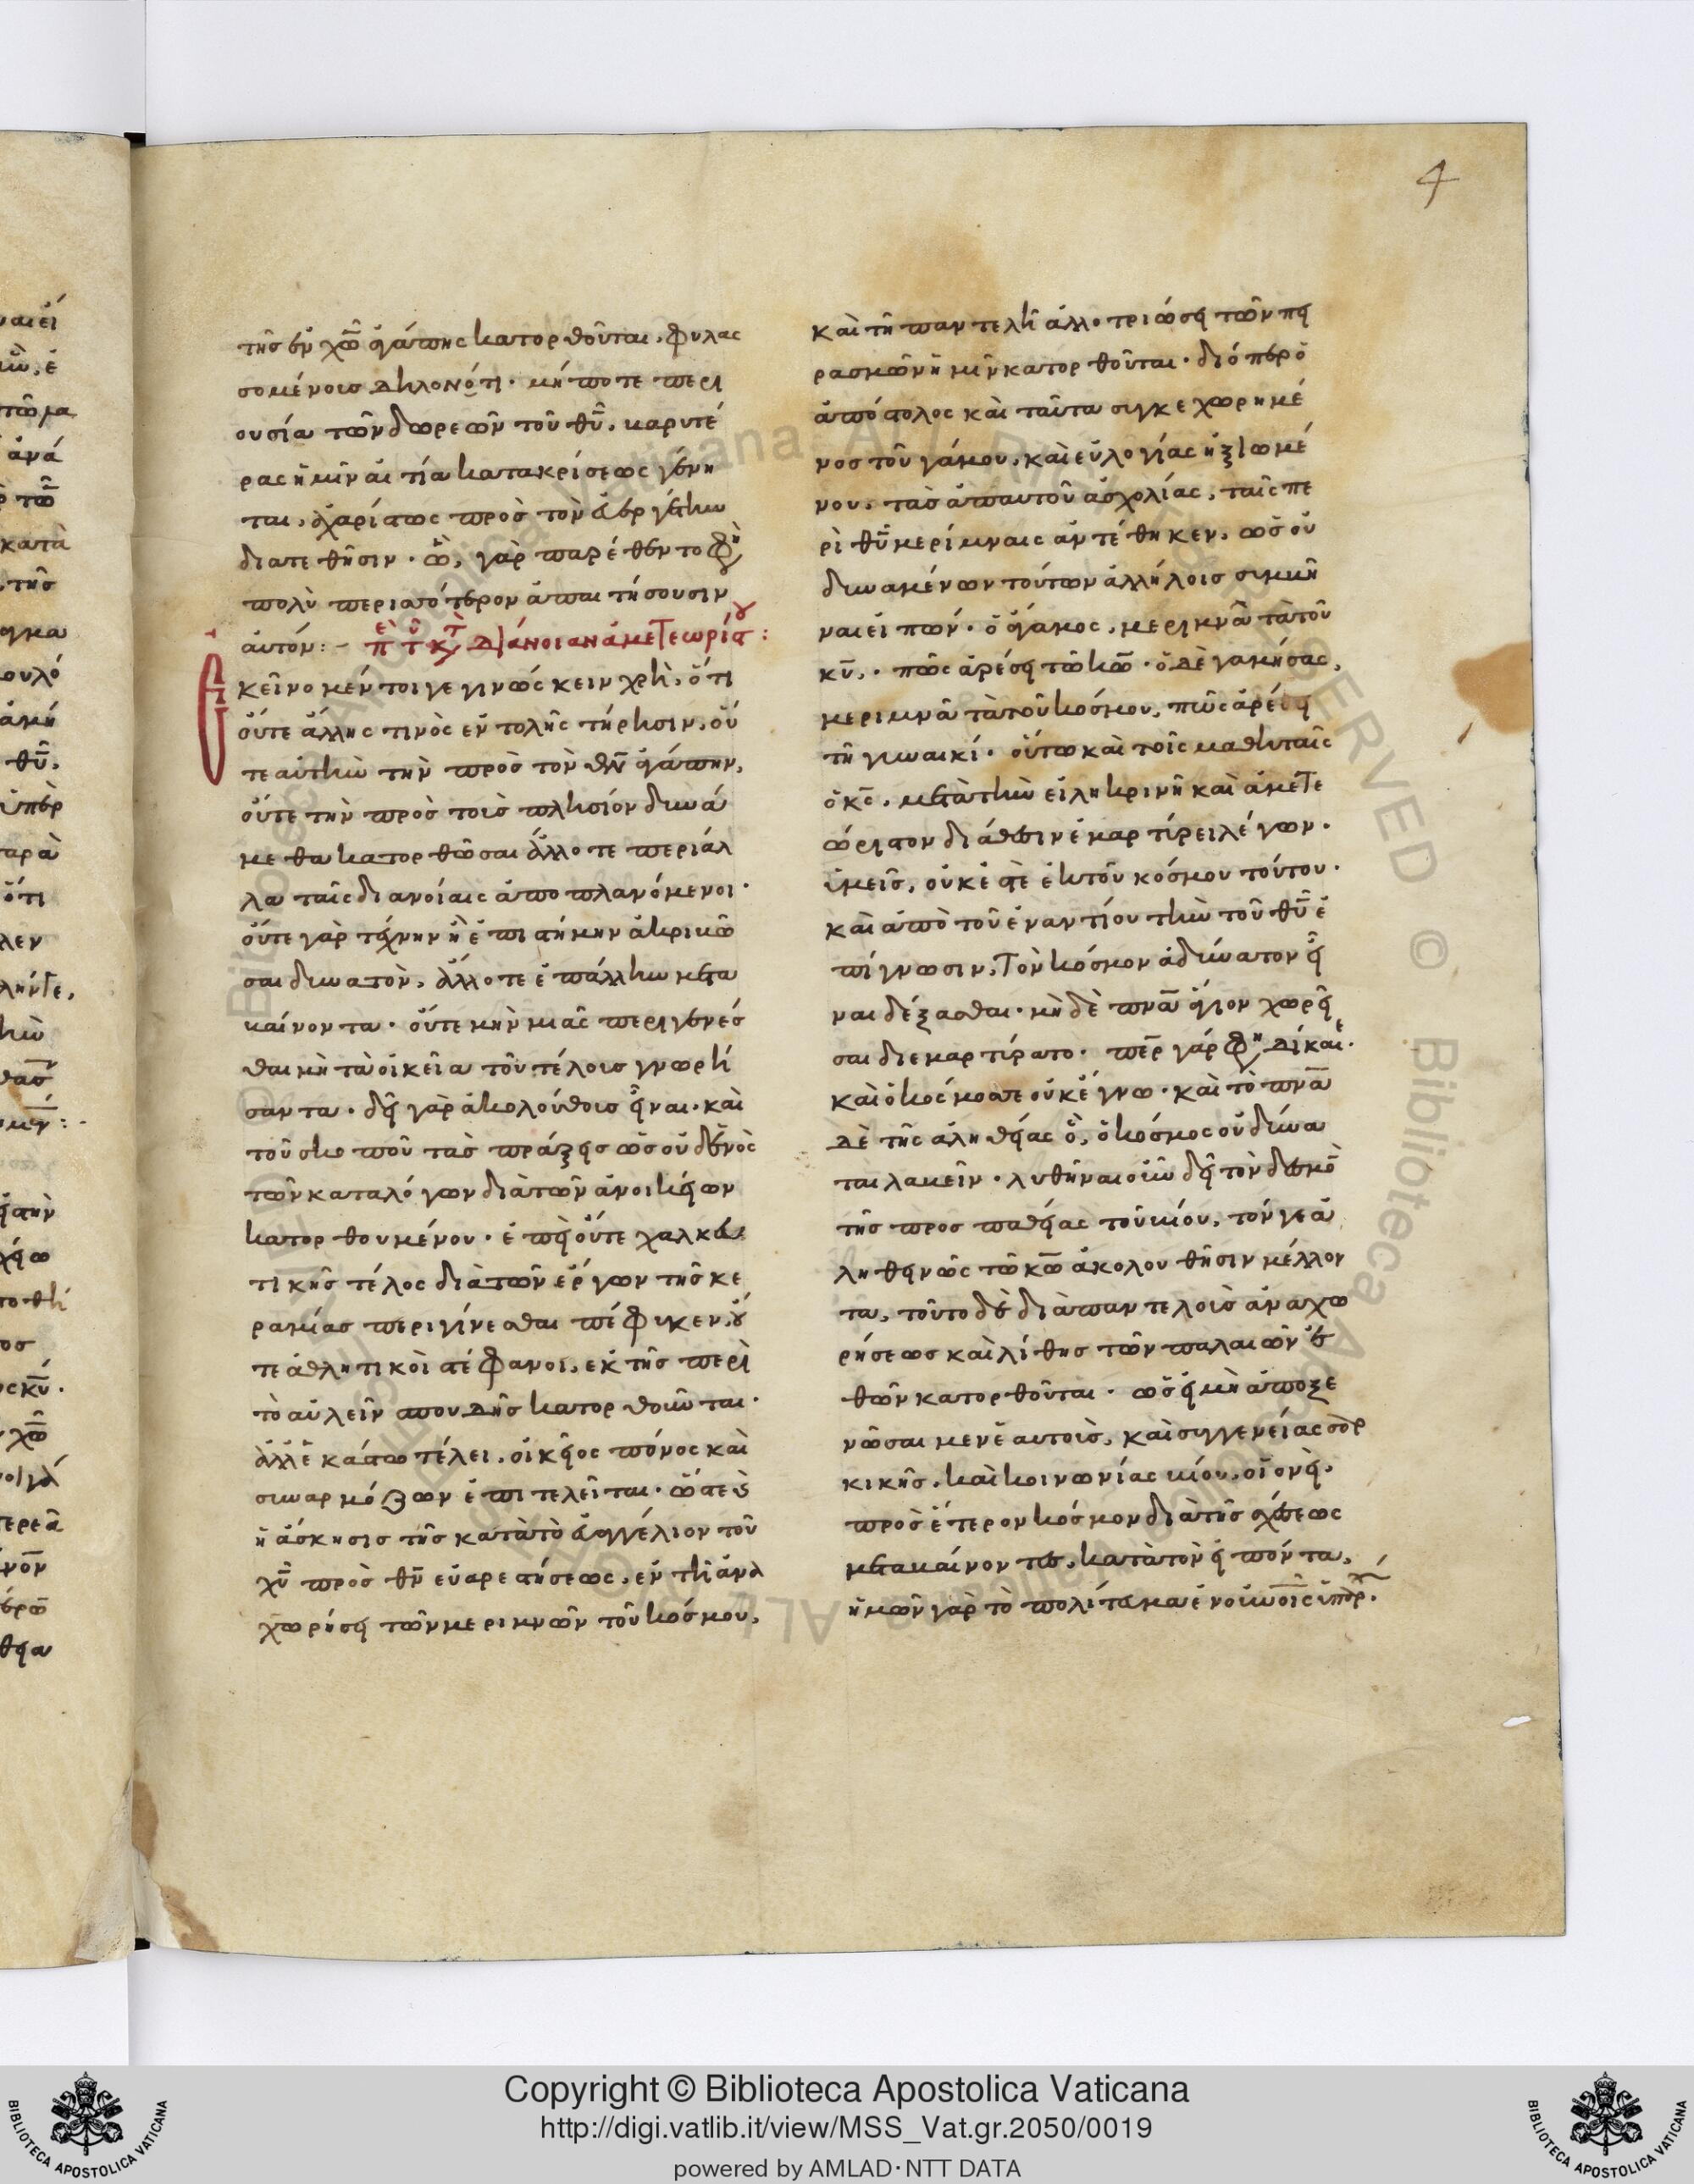 4
τῆς ἐν χῶ ἀγάπης κατορθοῦται. φυλασ
σομένοις δηλονότι. μήποτε περι
ουσία τῶν δωρεῶν τοῦ θῦ, βαρυτέ
ρας ἡμῖν αἰτία κατακρίσεως γένη
ται, ἀχαρίστως πρὸς τὸν εὐεργέτην
διατεθῆσιν. ὧ, γὰρ παρέθεντο φη
πολὺ περισσότερον ἀπαιτήσουσιν
αὐτόν:- πε τοῦ κτ διάνοιαν ἀμετεωρίστου:
Εκεῖνο μέντοιγε γινώσκειν χρὴ, ὅτι
οὔτε ἄλλης τινὸς ἐντολῆς τήρησιν, οὔ
τε αὐτὴν τὴν πρὸς τὸν θν ἀγάπην,
οὔτε τὴν πρὸς τοὶς πλησίον δυνά
μεθα κατορθῶσαι ἄλλοτε περι ἄλ
λα ταῖς διανοίαις ἀποπλανόμενοι.
οὔτε γὰρ τέχνην ἢ ἐπιστήμην ἀκριβῶ
σαι δυνατὸν, ἄλλοτε ἐπ ἄλλην μετα
βαίνοντα. οὔτε μὴν μιᾶς περιγενέσ
θαι μὴ τὰ οἰκεῖα τοῦ τέλους γνωρί
σαντα. δεῖ γὰρ ἀκολούθοις εἶναι. καὶ
τοῦ σκοποῦ τὰς πράξεις ὡς οὐδενὸς
τῶν καταλόγων διὰ τῶν ἀνοικείων
κατορθουμένου. ἐπεὶ οὔτε χαλκευ
τικῆς τέλος διὰ τῶν ἔργων τῆς κε
ραμίας περιγίνεσθαι πέφυκεν, οὔ
τε ἀθλητικοὶ στέφανοι, ἐκ τῆς περὶ
τὸ αὐλεῖν σπουδῆς κατορθοῦνται.
ἀλλ ἑκάστω τέλει, οἰκεῖος πόνος καὶ
συναρμόζων ἐπιτελεῖται. ὥστε
ἡ ἄσκησις τῆς κατὰ τὸ εὐαγγέλιον τοῦ
χῦ πρὸς θν εὐαρεστήσεως, ἐν τῆ ἀνα
χωρήσει τῶν μεριμνῶν τοῦ κόσμου,
καὶ τῆ παντελῆ ἀλλοτριώσει τῶν πει
ρασμῶν ἡμῖν κατορθοῦται. διόπερ ὁ
ἀπόστολος καὶ ταῦτα συγκεχωρημέ
νος τοῦ γάμου, καὶ εὐλογίας ἠξιωμέ
νου, τὰς ἀπ αυτοῦ ἀσχολίας, ταῖς πε
ρὶ θῦ μερίμναις ἀντέθηκεν, ὡς οὐ
δυναμένων τούτων ἀλλήλοις συμβῆ
ναι εἰπών. ὁ ἄγαμος, μεριμνᾶ τὰ τοῦ
κῦ. πῶς ἀρέσει τῶ κω. ὁ δὲ γαμήσας,
μεριμνᾶ τὰ τοῦ κόσμου, πῶς ἀρέσει
τῆ γυναικί. οὕτω καὶ τοῖς μαθηταῖς
ὁ κς, μετὰ τὴν εἰληκρινῆ καὶ ἀμετε
ώριστον διάθεσιν ἐμαρτύρει λέγων.
ὑμεῖς, οὐκ ἐστὲ ἐκ τοῦ κόσμου τούτου.
καὶ ἀπὸ τοῦ ἐναντίου τὴν τοῦ θῦ ἐ
πίγνωσιν, τὸν κόσμον ἀδύνατον εἶ
ναι δέξασθαι. μὴ δὲ πνα ἅγιον χωρεῖ
σαι διεμαρτύρατο. περ γάρ φη δίκαιε.
καὶ ὁ κόσμος σε οὐκ ἔγνω. καὶ τὸ πνα
δὲ τῆς ἀληθείας ὃ, ὁ κόσμος οὐ δύνα
ται λαβεῖν. λυθῆναι οὖν δεῖ τὸν δεσμὸ
τῆς προσπαθείας τοῦ βίου, τόν γε ἀ
ληθεινῶς τῶ κω ἀκολουθῆσιν μέλλον
τα, τοῦτο δὲ διὰ παντελοὶς ἀναχω
ρήσεως καὶ λίθης τῶν παλαιῶν ἐ
θῶν κατορθοῦται. ὡς εἰ μὴ ἀποξε
νῶσαι μεν ἑαυτοὶς, καὶ συγγενείας σαρ
κικῆς, καὶ κοινωνίας βίου, οἱονεὶ
πρὸς ἕτερον κόσμον διὰ τῆς σχέσεως
μεταβαίνοντες, κατὰ τὸν εἰπόντα,
ἡμῶν γὰρ τὸ πολίτευμα ἐν οὐνοῖς ὑπάρ.
Copyright © Biblioteca Apostolica Vaticana
http://digi.vatlib.it/view/MSS_Vat.gr.2050/0019
powered by AMLAD·NTT DATA